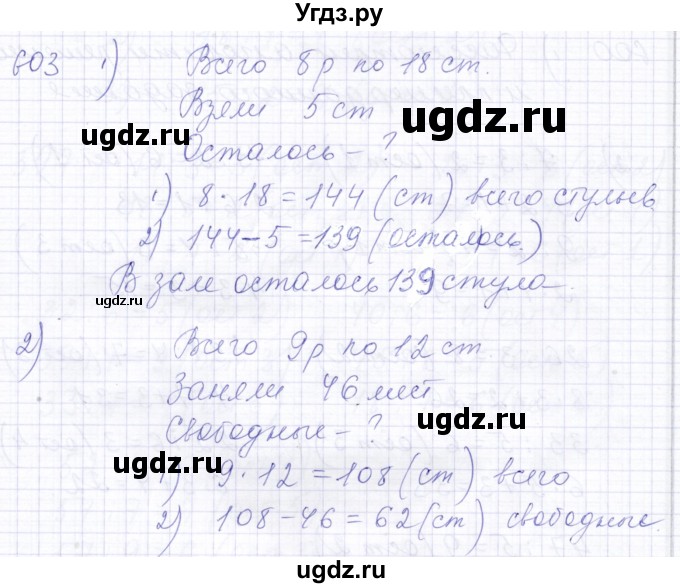 Угдз.ру
603 1) Всего 8р по 18 ст.
Взяли 5 ст
ugdz.ru
ugdz.ru
Осталось - ?
1) 8 · 18 = 144 (ст) всего стульев
2) 144 - 5 = 139 (осталось)
В зале осталось 139 стула.
ugdz.ru
2) Всего 9р по 12 ст
Заняли 46 мест
Свободные - ?
ugdz.ru
ugdz.ru
1) 9 · 12 = 108 (ст) всего
2) 108 - 46 = 62 (ст) свободные.
ugdz.ru
ugdz.ru